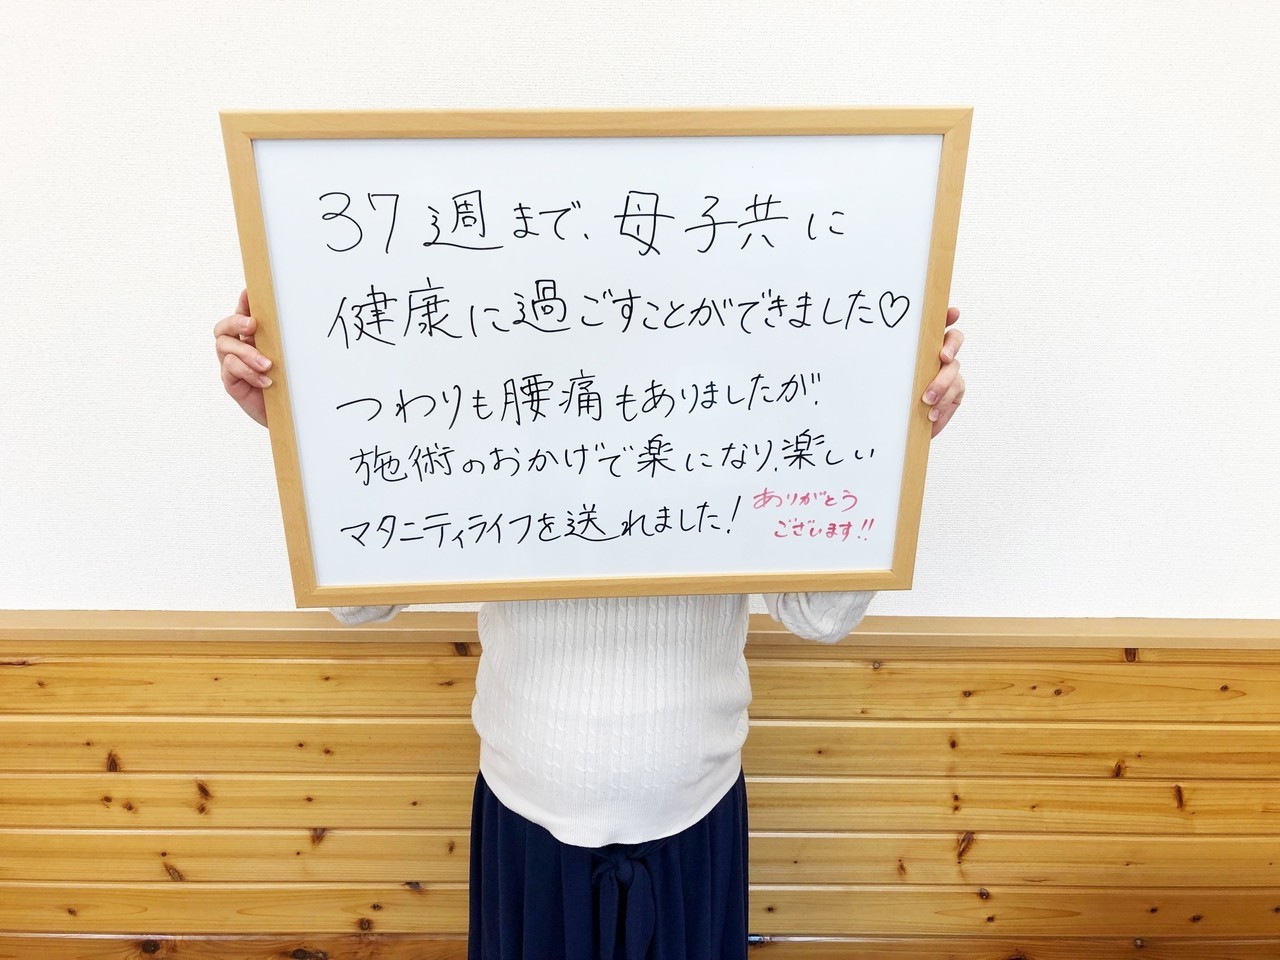 37週まで、母子共に
健康に過ごすことができました♡
つわりも腰痛もありましたが、
施術のおかげで楽になり、楽しい
マタニティライフを送れました!
ありがとう
ございます!!